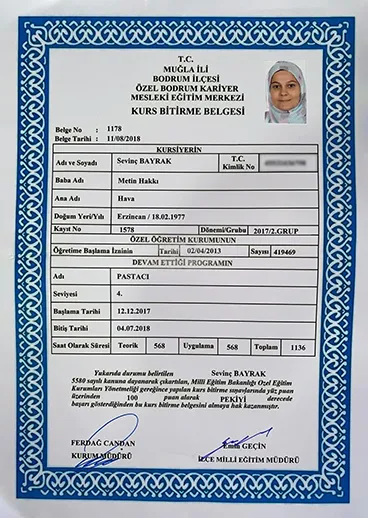 T.C.
MUĞLA İLİ
BODRUM İLÇESİ
ÖZEL BODRUM KARİYER
MESLEKİ EĞİTİM MERKEZİ
KURS BİTİRME BELGESİ
Belge No : 1178
Belge Tarihi : 11/08/2018
KURSİYERİN
Adı ve Soyadı Sevinç BAYRAK T.C. Kimlik No
Baba Adı Metin Hakkı
Ana Adı Hava
Doğum Yeri/Yılı Erzincan / 18.02.1977
Kayıt No 1578 Dönemi/Grubu 2017/2.GRUP
ÖZEL ÖĞRETİM KURUMUNUN
Öğretime Başlama İzninin Tarihi 02/04/2013 Sayısı 419469
DEVAM ETTİĞİ PROGRAMIN
Adı PASTACI
Seviyesi 4.
Başlama Tarihi 12.12.2017
Bitiş Tarihi 04.07.2018
Saat Olarak Süresi Teorik 568 Uygulama 568 Toplam 1136
Yukarıda durumu belirtilen Sevinç BAYRAK
5580 sayılı kanuna dayanarak çıkartılan, Milli Eğitim Bakanlığı Özel Eğitim
Kurumları Yönetmeliği gereğince yapılan kurs bitirme sınavlarında yüz puan
üzerinden 100 puan alarak PEKİYİ derecede
başarı gösterdiğinden bu kurs bitirme belgesini almaya hak kazanmıştır.
FERDAĞ CANDAN Emin GEÇİN
KURUM MÜDÜRÜ İLÇE MİLLİ EĞİTİM MÜDÜRÜ